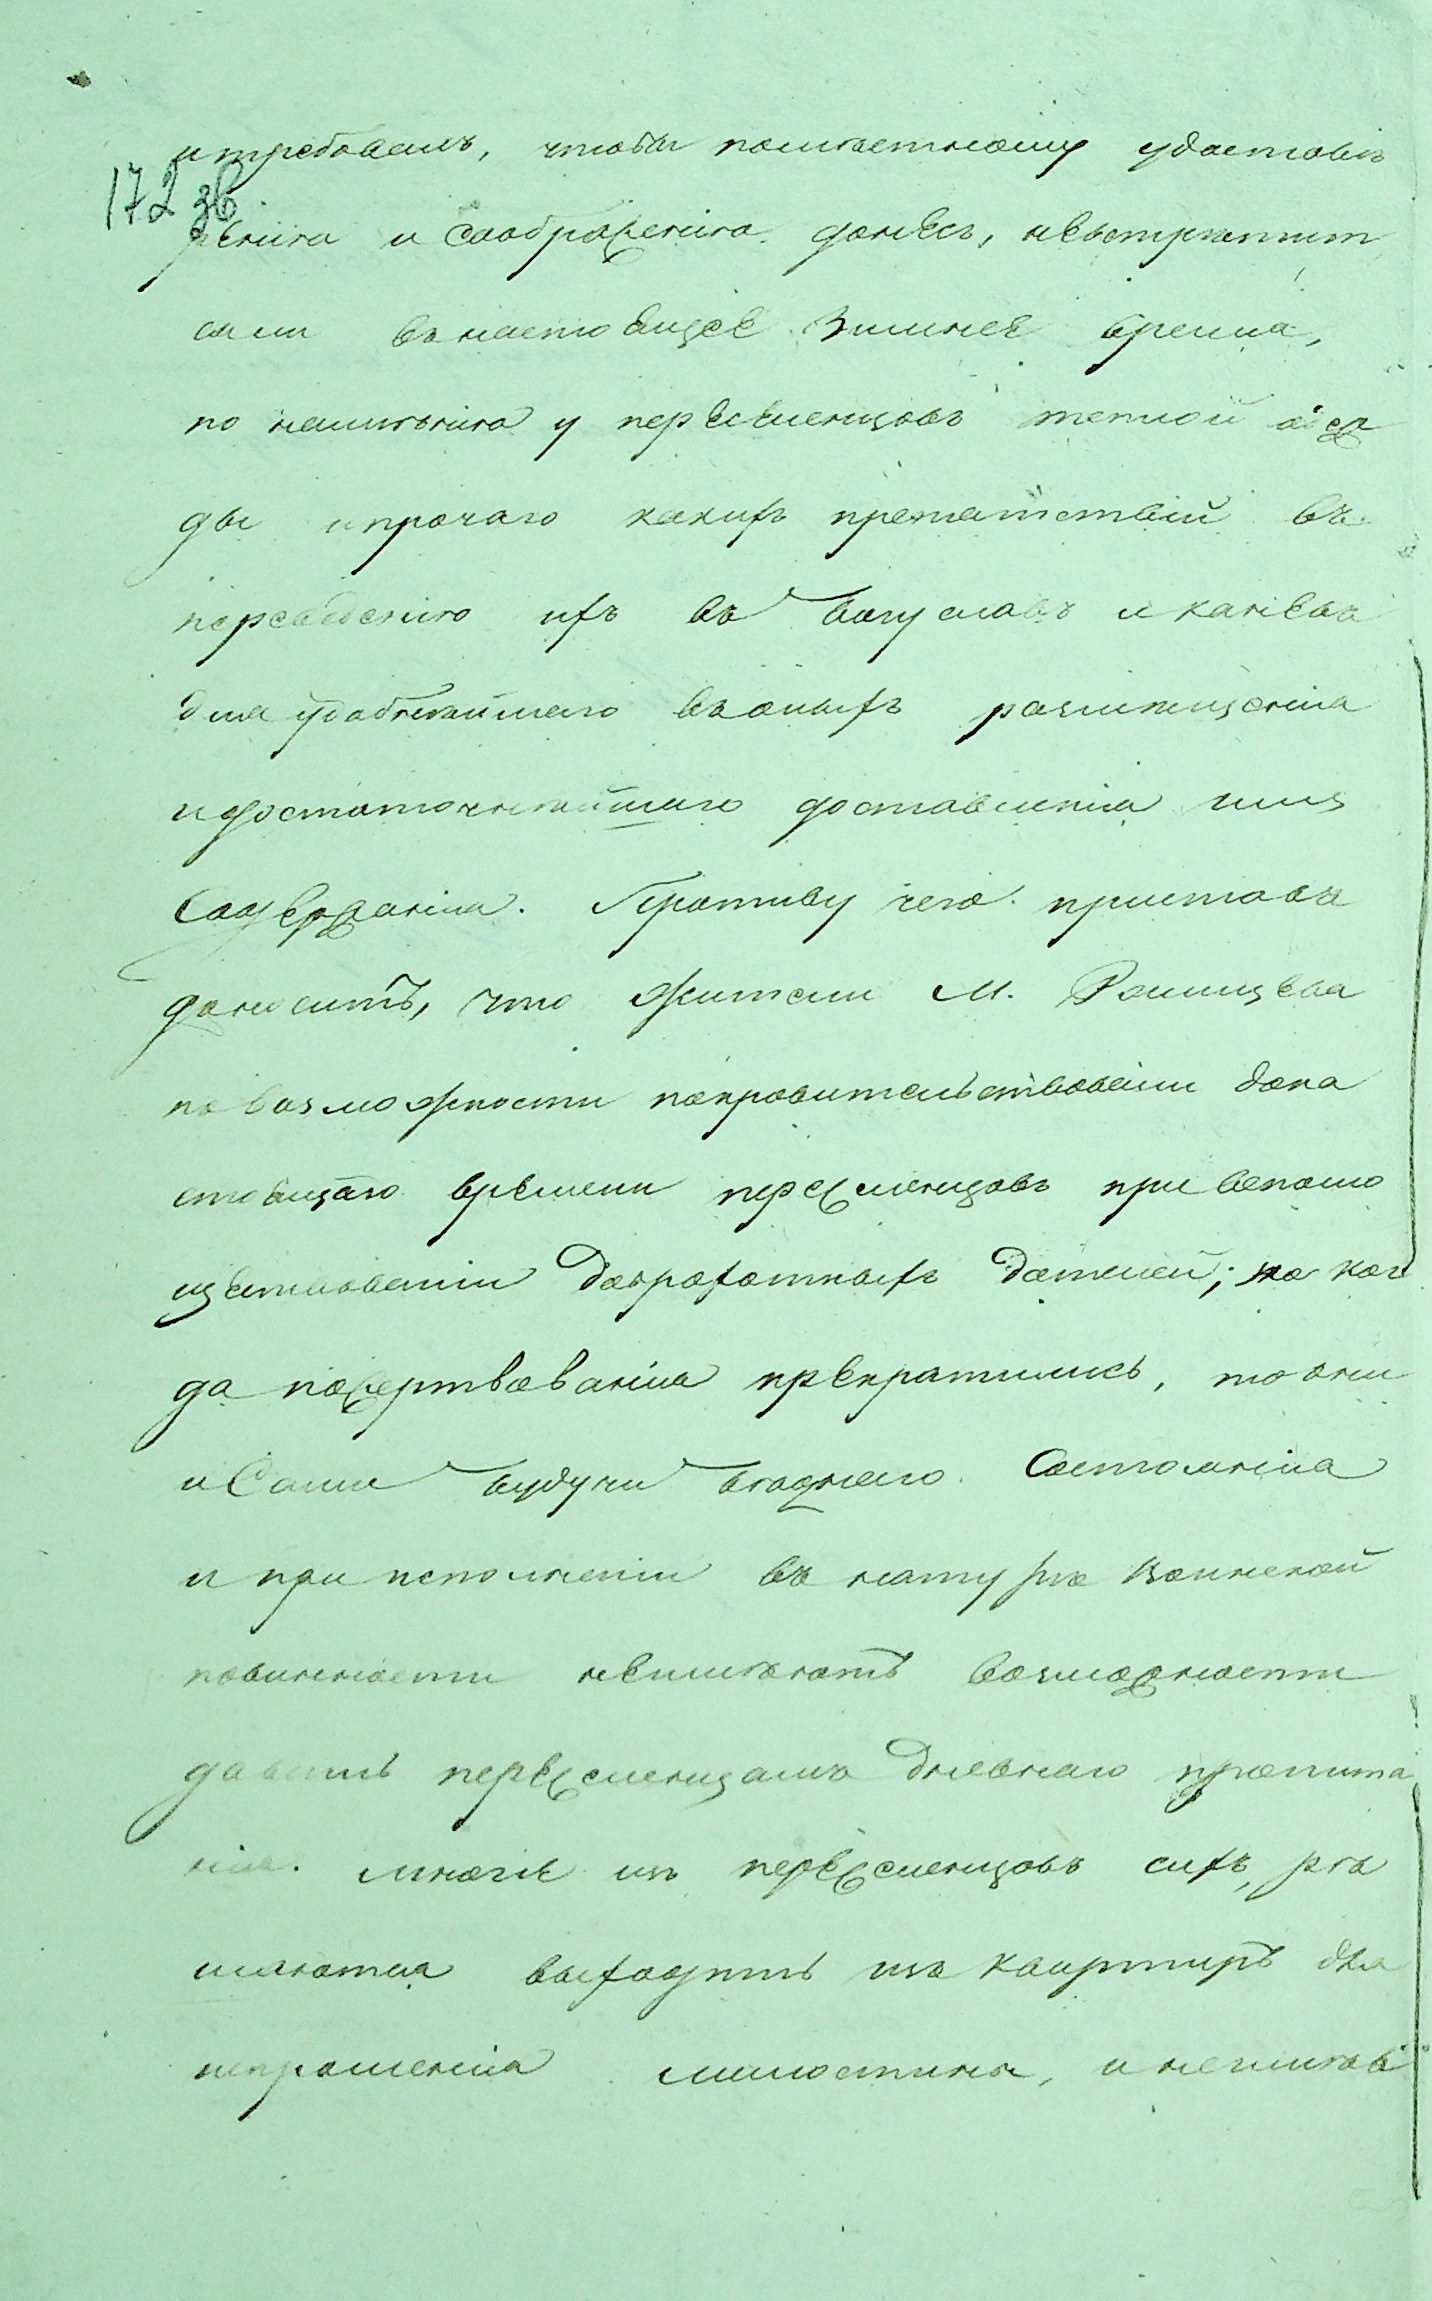 и требовалъ, чтобы помѣстному удостовѣ
172 зв.
ренію и соображенію донесъ, невстрѣтит
сяли въ настоящее зимнее время,
по неимѣнію у переселенцовъ теплой оде
жды и прочаго какихъ препятствій въ
переведенію ихъ въ Богуславъ и Каневъ
для удобнѣйшаго въ оныхъ размѣщенія
и достаточнѣйшаго доставленія имъ
Содержанія. Противу чего приставъ
доноситъ, что жители м.
повозможности покровительствовали дона
стоящаго времени переселенцовъ при вспомо
ществованіи доброхотныхъ дателей; но ког
да пожертвованія прекратились, то они
и Сами будучи бѣднаго Состоянія
и при исполненіи въ натурѣ воинской
повинности неимѣютъ возможности
давать переселенцамъ дневнаго пропита
нія. многіе изъ переселенцовъ сихъ, рѣ
шаются выходить изъ квартиръ для
испрошенія милостины, и неимѣя